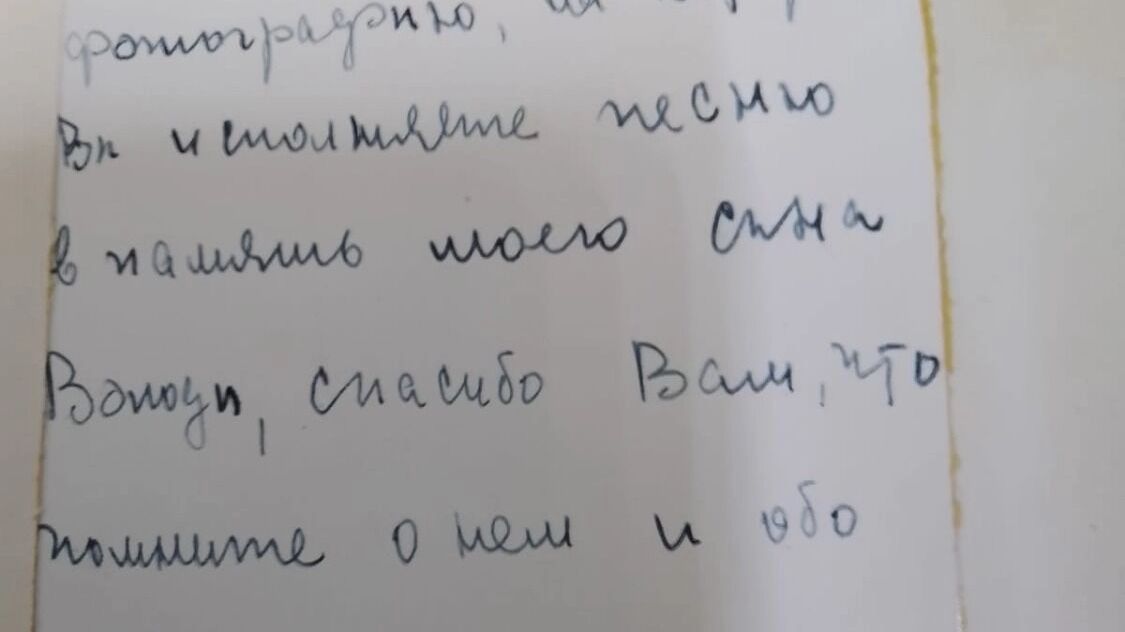 фотографию,
Вы исполняете песню
в память моего сына
Володи, спасибо Вам, что
помните о нем и обо